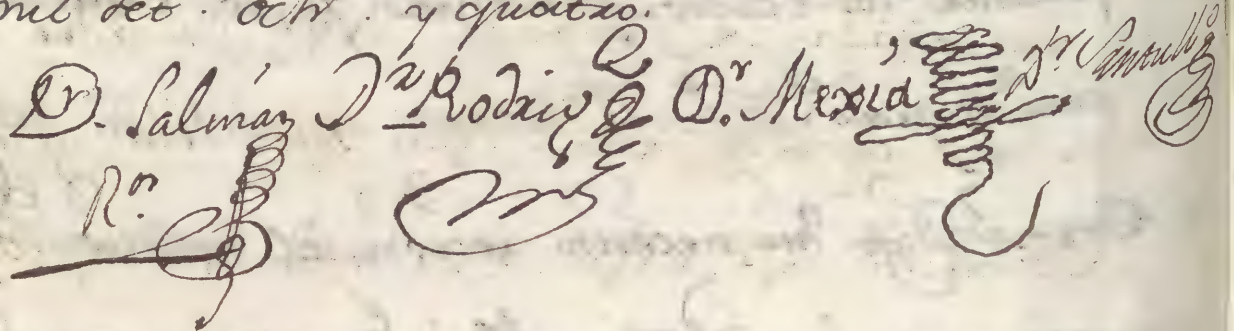 mil set. och. y quatro.
Dr. Salmán Dr. Rodrig Dr. Mexía Dr. Santull
Rōr.